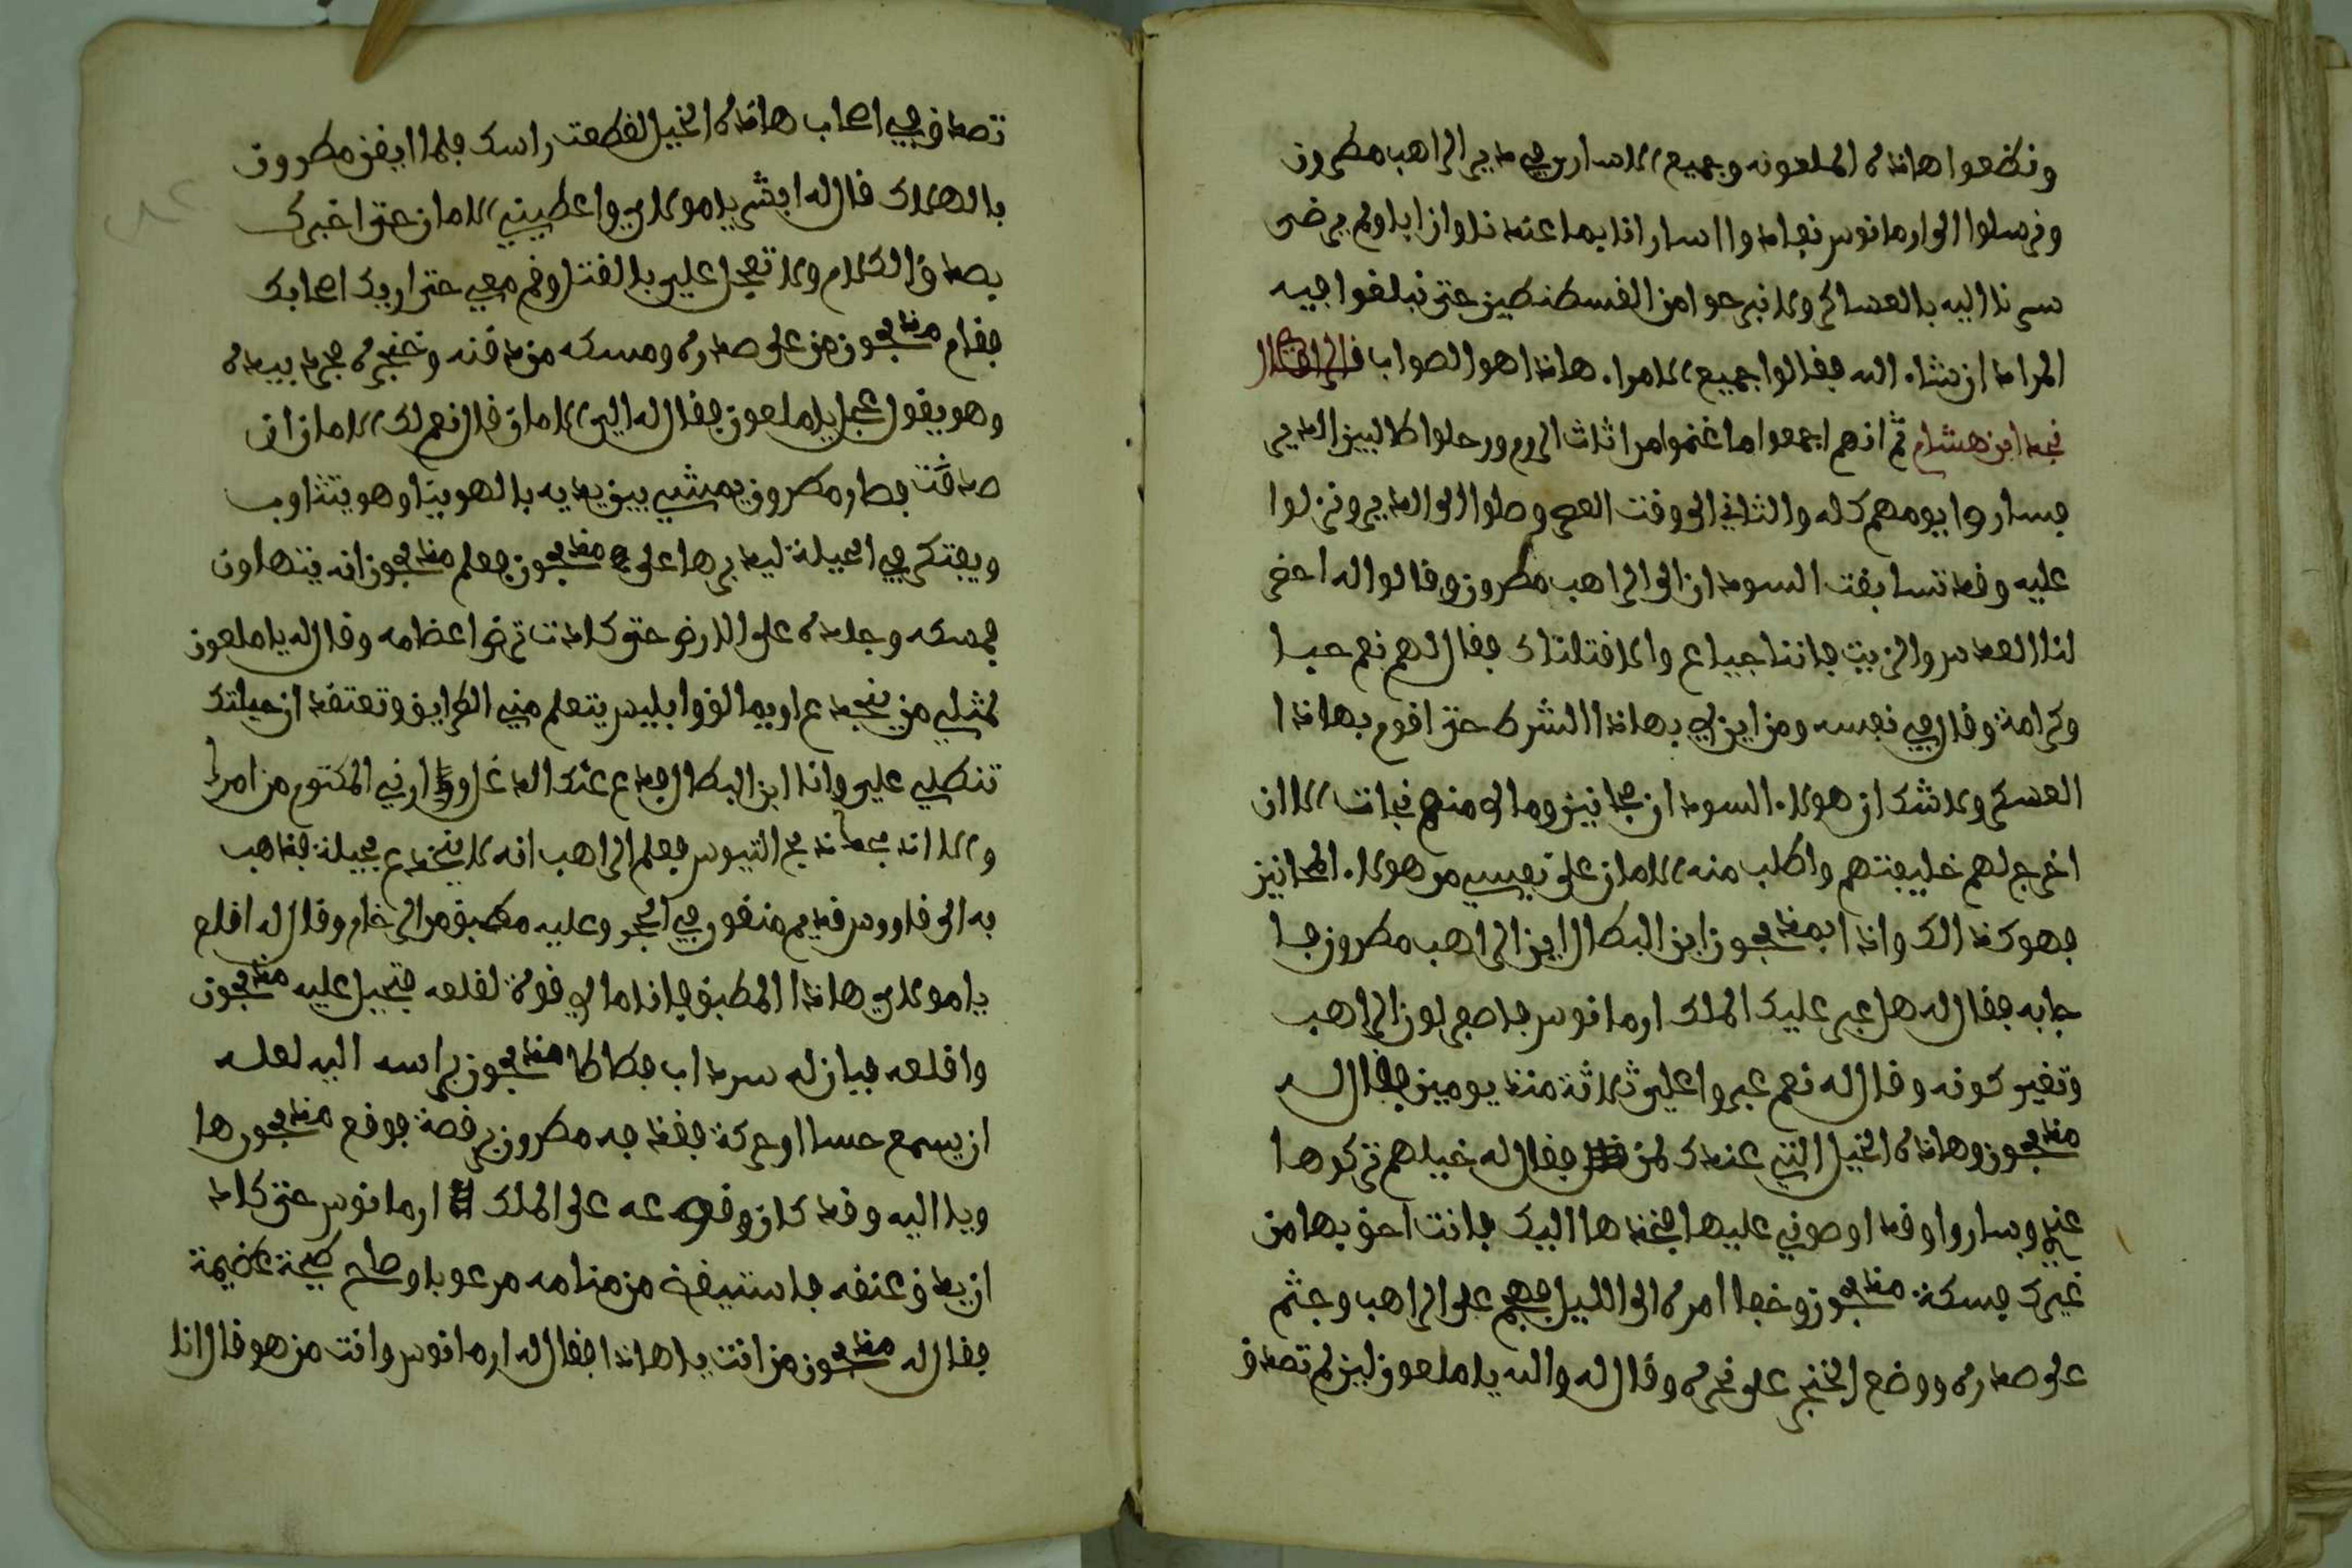 ونضعوا هاذه الملعونه وجميع الاسارى في دير الراهب مطرون
ونرسلوا الى ارمانوس نفاد والاسارانا بما عنده نلوان ابا ولم يرضى
سرنا اليه بالعساكر ولا نبرحوا من القسطنطين حتى نبلغوا فيه
المراد ان شاء الله فقالوا جميع الامراء هاذا هو الصواب قال الراوي
نجد ابن هشام ثم انهم اجمعوا ما غنموا من اثاث الروم ورحلوا طالبين الدير
فساروا يومهم كله والثاني الى وقت العصر وصلوا الى الدير ونزلوا
عليه وقد تسابقت السودان الى الراهب مطرون وقالوا له احضر
لنا العدس والزيت فاننا جياع والا قتلناك فقال لهم نعم حبا
وكرامة وقال في نفسه ومن اين لي بهاذا الشرط حتى اقوم بهاذا
العسكر ولا شك ان هولاء السودان مجانين وما لي منهم نجات الا ان
اخرج لهم خليفتهم واطلب منه الامان على نفسي من هولاء المجانين
فهو كذالك واذا بمذبحون ابن البطال اين الراهب مطرون فا
جابه فقال له هل عبر عليك الملك ارمانوس فاصفر لون الراهب
وتغير كونه وقال له نعم عبروا علي ثلاثة منذ يومين فقال له
مذبحون وهاذه الخيل التي عندك لمن فقال له خيلهم تركوها
عندي وساروا وقد اوصوني عليها فخذها اليك فانت احق بها من
غيرك فسكت مذبحون وخفا امره الى الليل فهجم على الراهب وجثم
على صدره ووضع الخنجر على نحره وقال له والله يا ملعون لين لم تصدق
تصدق في اصحاب هاذه الخيل لقطعت راسك فلما ايقن مطرون
بالهلاك قال له ابشر يا مولاي واعطيني الامان حتى اخبرك
بصدق الكلام ولا تعجل علي بالقتل وقم معي حتى اريك اصحابك
فقام مذبحون من على صدره ومسكه من ذقنه وخنجره مجرد بيده
وهو يقول عجل يا ملعون فقال له الي الامان قال نعم لك الامان ان
صدقت فصار مطرون يمشي بين يديه بالهوينا وهو يتثاوب
ويفتكر في الحيلة ليدبرها على مذبحون فعلم مذبحون انه يتهاون
فمسكه وجلده على الارض حتى كادت ترض اعظامه وقال له يا ملعون
لمثلي من ينخدع او يمالق وابليس يتعلم مني الطرايق وتعتقد ان حيلتك
تنطلي علي وانا ابن البطال فدع عنك الدغل وارني المكتوم من امرك
والا اذبحك ذبح التيوس فعلم الراهب انه لا ينخدع بحيلة فذهب
به الى فاووس قديم منقور في الحجر وعليه مطبق من الرخام وقال له اقلع
يا مولاي هاذا المطبق فانا ما لي قوة لقلعه فتحيل عليه مذبحون
واقلعه فبان له سرداب فطاطا مذبحون براسه اليه لعله
ان يسمع حسا او حركة فقذفه مطرون برفصة فوقع مذبحون هنا
ويا اليه وقد كان وقوعه على الملك ارمانوس حتى كاد
ان يدق عنقه فاستيقظ من منامه مرعوبا وصاح صيحة عظيمة
فقال له مذبحون من انت يا هاذا فقال له ارمانوس وانت من هو قال انا